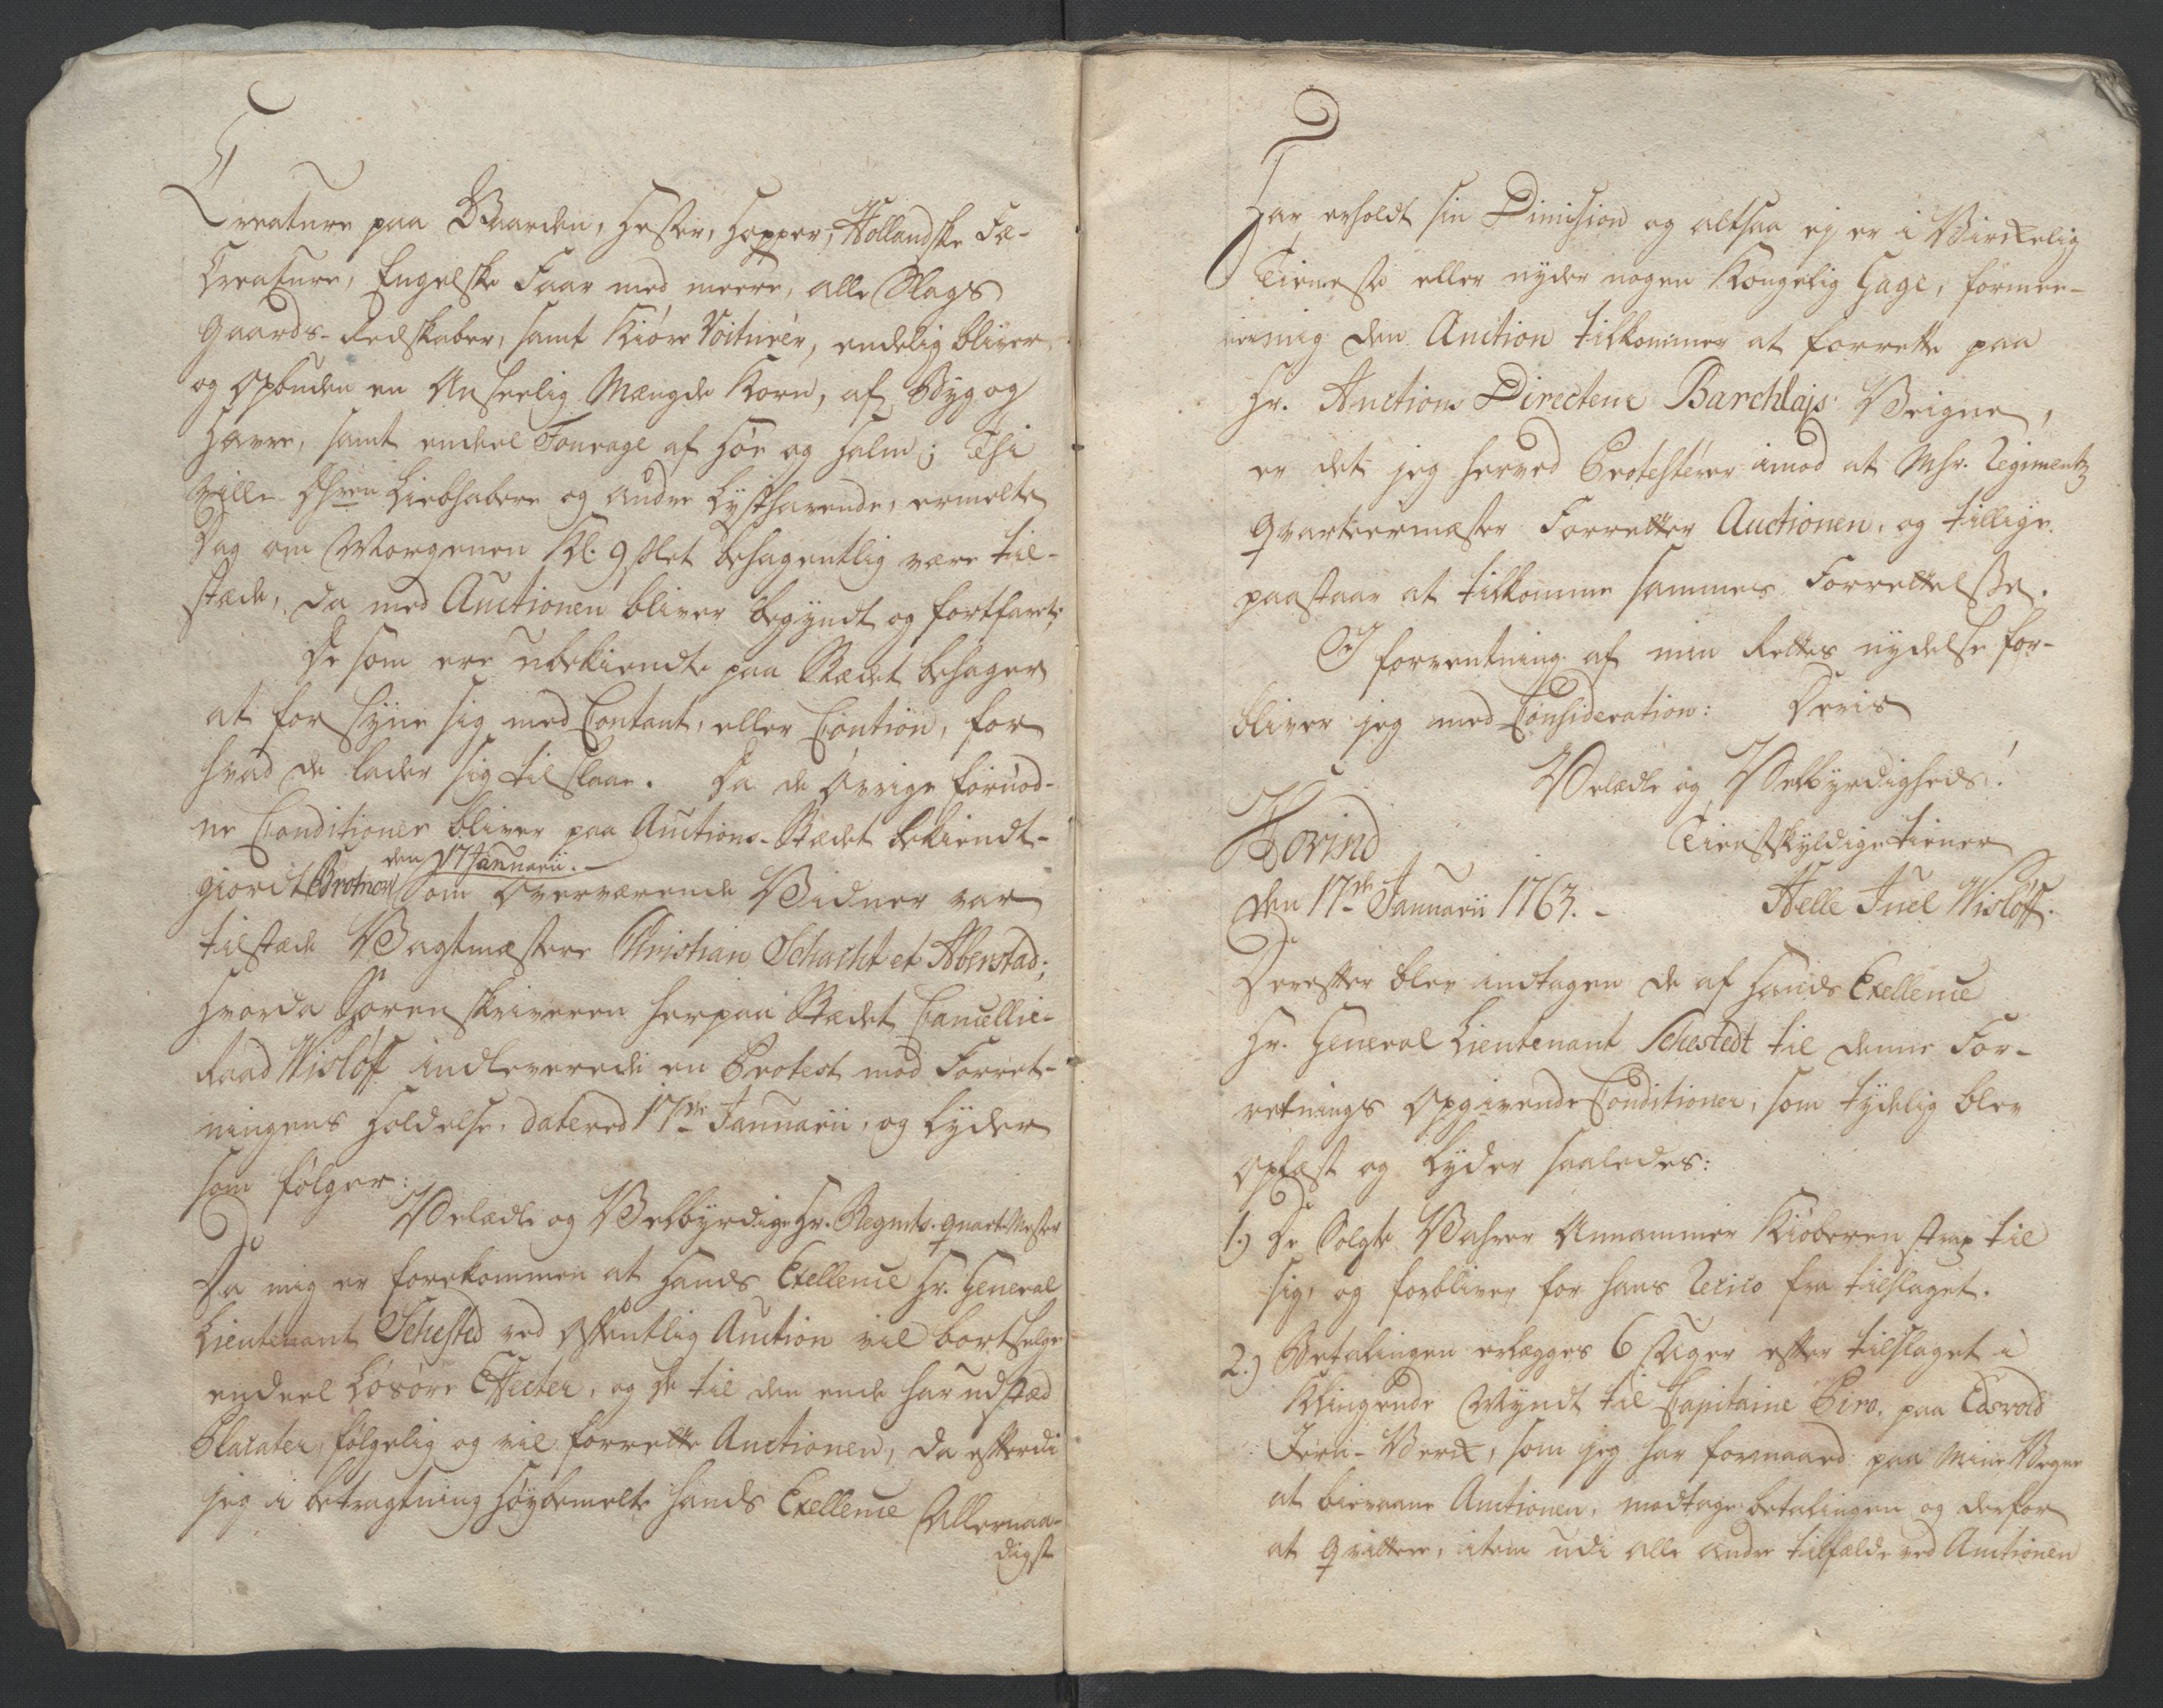 Creature paa Gaarden, Hester, Hopper, Hollandske Fæ-
Creature, Engelske Faar med meere, alle Slags
Gaards-Redskaber, samt Kiøre Voiturer, endelig bliver
og Opbuden en Anseelig Mængde Korn, af Byg og
Havre, samt endeel Fourage af Høe og Halm; Thi
ville Liebhabere og andre Lysthavende, ermelte
Dag om Morgenen Kl. 9 slet behagentlig være til-
stæde, da med Auctionen bliver begyndt og fortfaret;
De som ere ubekiendte paa Stædet behager
at for syne sig med Contant, eller Caution, for
hvad de lader sig tilslaae. Da de øvrige fornød-
ne Conditioner bliver paa Auctions-Stædet bekiendt-
den 17 Januarii.
giordt Som Overværende Vidner var
tilstæde Vagtmestere Christian Schacht et Aberstad;
Hvorda Sorenskriveren herpaa Stædet Cancellie-
Raad Wisløff indleverede en Protest mod Forret-
ningens Holdelse, datered 17de Januarii, og lyder
som følger:
Velædle og Velbyrdige Hr. Regmts. Quart. Mester
Da mig er forekommen at Hands Exellence Hr. General
Lieutenant Schested ved Offentlig Auction vil bortselge
endeel Løsøre Effecter, og De til den ende har udstæd
Placater, følgelig og vil forrette Auctionen, da efterdi
jeg i betragtning Høybemelte Hands Exellence Allernaa-
digst
Har erholdt sin Dimission og altsaa ej er i Virkelig
Tieneste eller nyder nogen Kongelig Gage, formee-
ner mig den Auction tilkommer at forrette paa
Hr. Auctions Directeur Barchlajs Veigne,
er det jeg herved Protesterer imod at Mhr. Regiments
Qvarteermester Forretter Auctionen, og tillige
paastaar at tilkomme sammes Forrettelse.
I forventning af min Rettes nydelse for-
bliver jeg med Consideration: Deris
Velædle og Velbyrdigheds!
Hovind Tienstskyldige tiener
den 17de Januarii 1763. Helle Juel Wisløff.
Derefter blev indtagen de af Hands Exellence
Hr. General Lieutenant Schestedt til denne For-
retnings Opgivende Conditioner, som tydelig blev
Oplæst og lyder saaledes:
1.) De Solgte Vahrer Annammer Kiøberen strax til
sig, og forbliver for hans Risico fra tilslaget.
2.) Betalingen erlægges 6 Uger efter tilslaget i
Klingende Myndt til Capitaine Piro, paa Edsvold
Jern-Verk, som jeg har formaaed paa mine Vegne
at bievaane Auctionen, modtage betalingen og derfor
at Qvittere, item udi alle andre tilfælde ved Auctionen